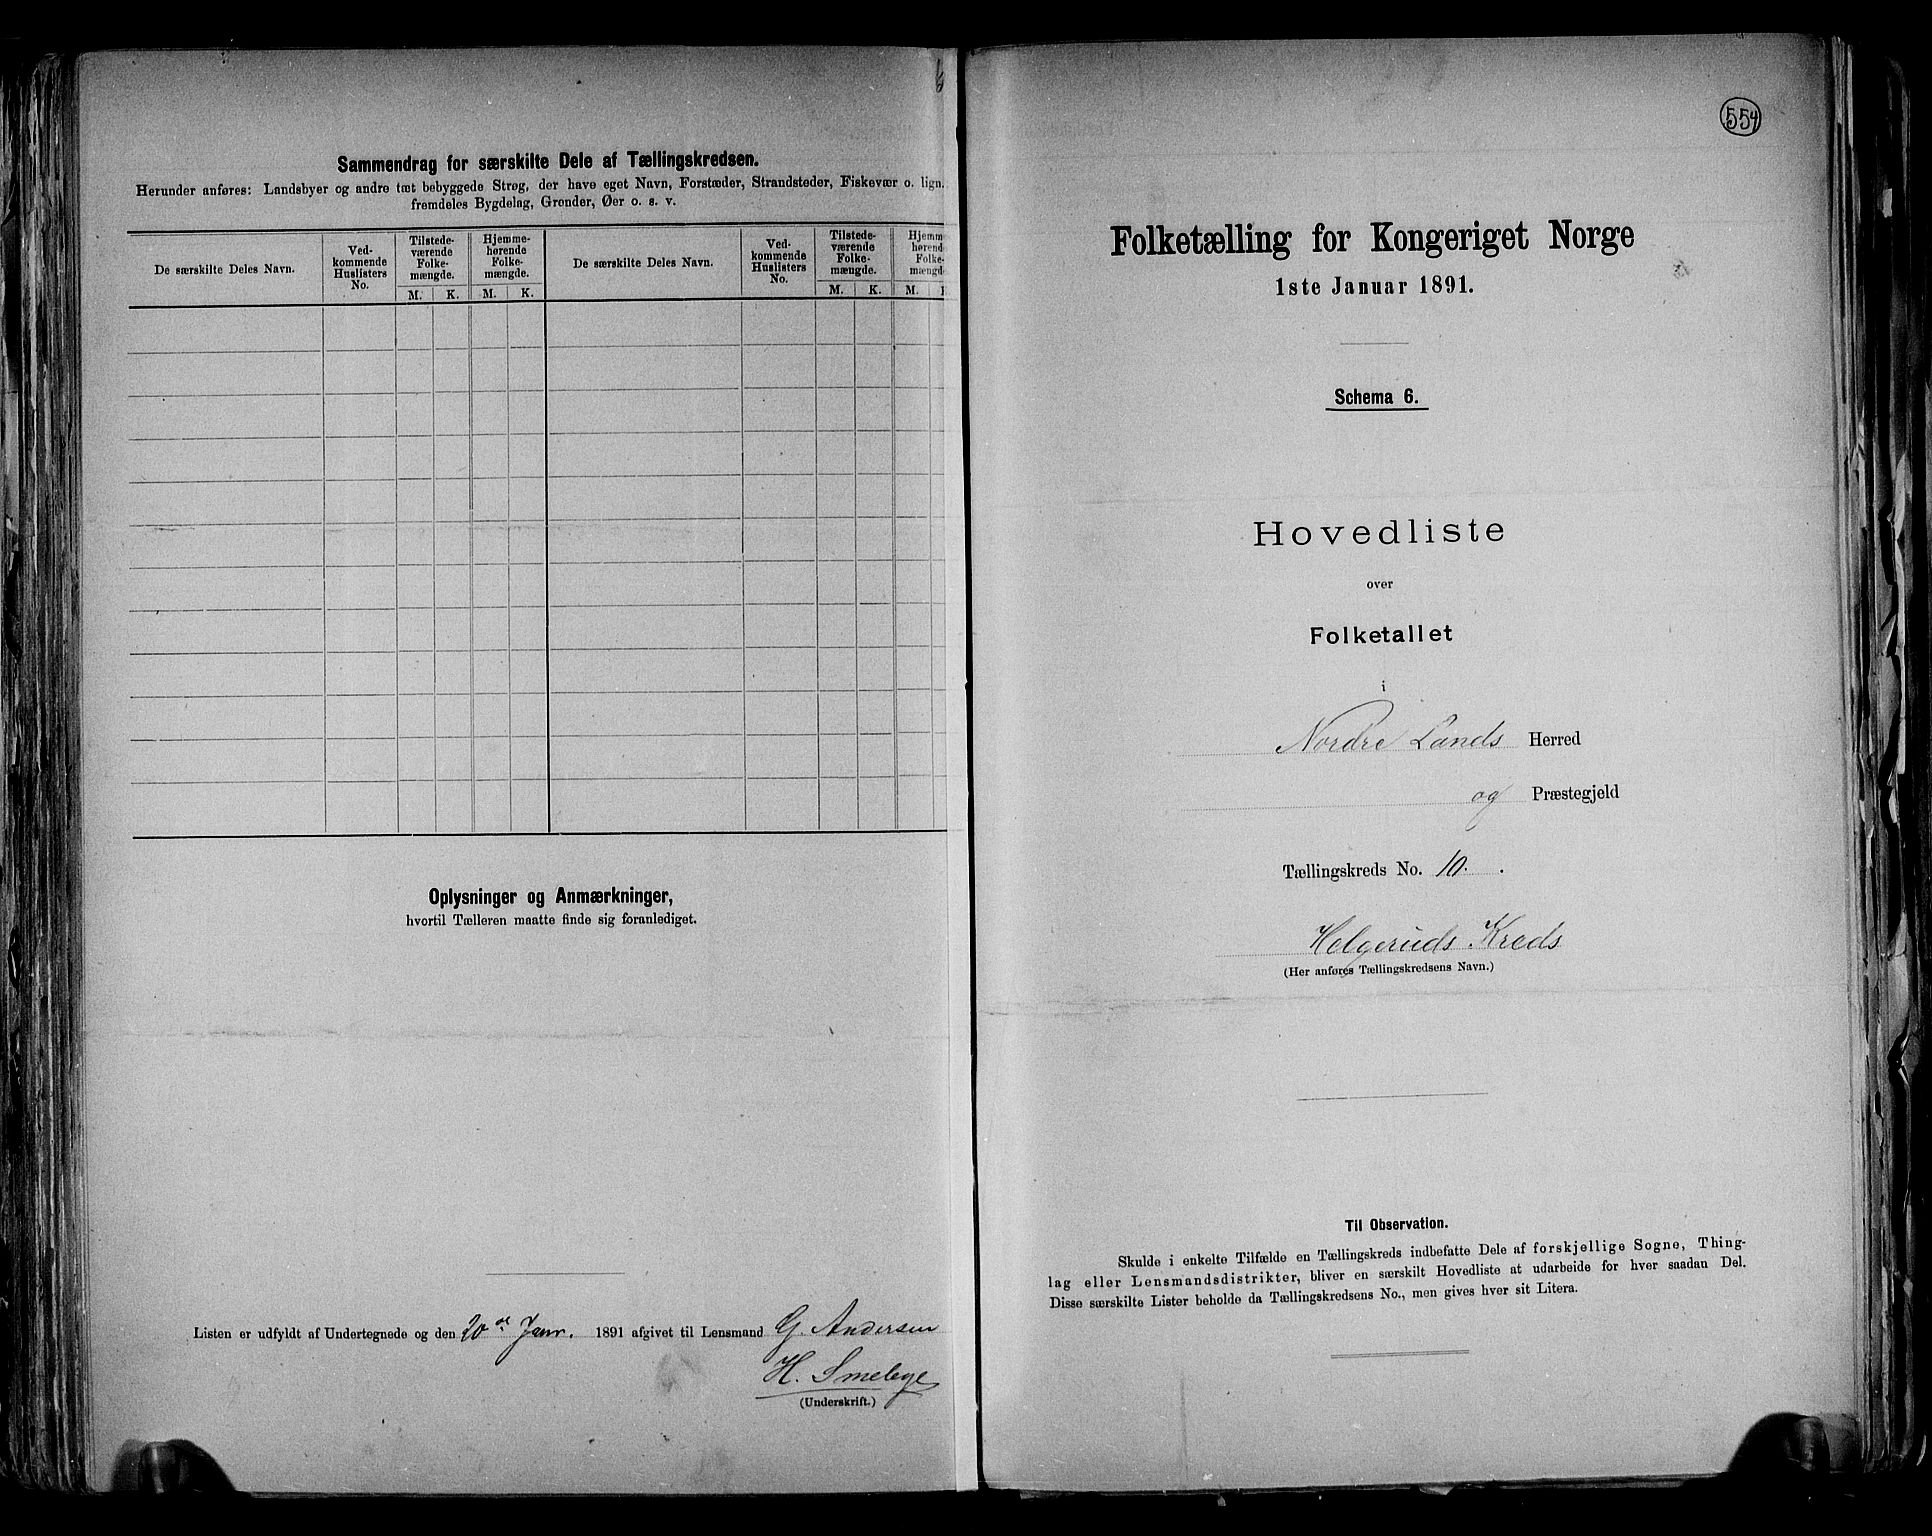 Sammendrag for særskilte Dele af Tællingskredsen.
Herunder anføres: Landsbyer og andre tæt bebyggede Strøg, der have eget Navn, Forstæder, Strandsteder, Fiskevær o. lign.
fremdeles Bygdelag, Grender, Øer o. s. v.
De særskilte Deles Navn.
Ved-
kommende
Huslisters
No.
Tilstede-
værende
Folke-
mængde.
Hjemme-
hørende
Folke-
mængde.
M. K. M. K.
De særskilte Deles Navn.
Ved-
kommende
Huslisters
No.
Tilstede-
værende
Folke-
mængde.
Hjemm
hørend
Folke-
mængd
M. K. M.
Oplysninger og Anmærkninger,
hvortil Tælleren maatte finde sig foranlediget.
Listen er udfyldt af Undertegnede og den 20de Janr. 1891 afgivet til Lensmand G. Andersen
H. Smebye
(Underskrift.)
554
Folketælling for Kongeriget Norge
1ste Januar 1891.
Schema 6.
Hovedliste
over
Folketallet
i
Nordre Lands Herred
og Præstegjeld
Tællingskreds No. 10.
Helgeruds Kreds
(Her anføres Tællingskredsens Navn.)
Til Observation.
Skulde i enkelte Tilfælde en Tællingskreds indbefatte Dele af forskjellige Sogne, Thing-
lag eller Lensmandsdistrikter, bliver en særskilt Hovedliste at udarbeide for hver saadan Del.
Disse særskilte Lister beholde da Tællingskredsens No., men gives hver sit Litera.